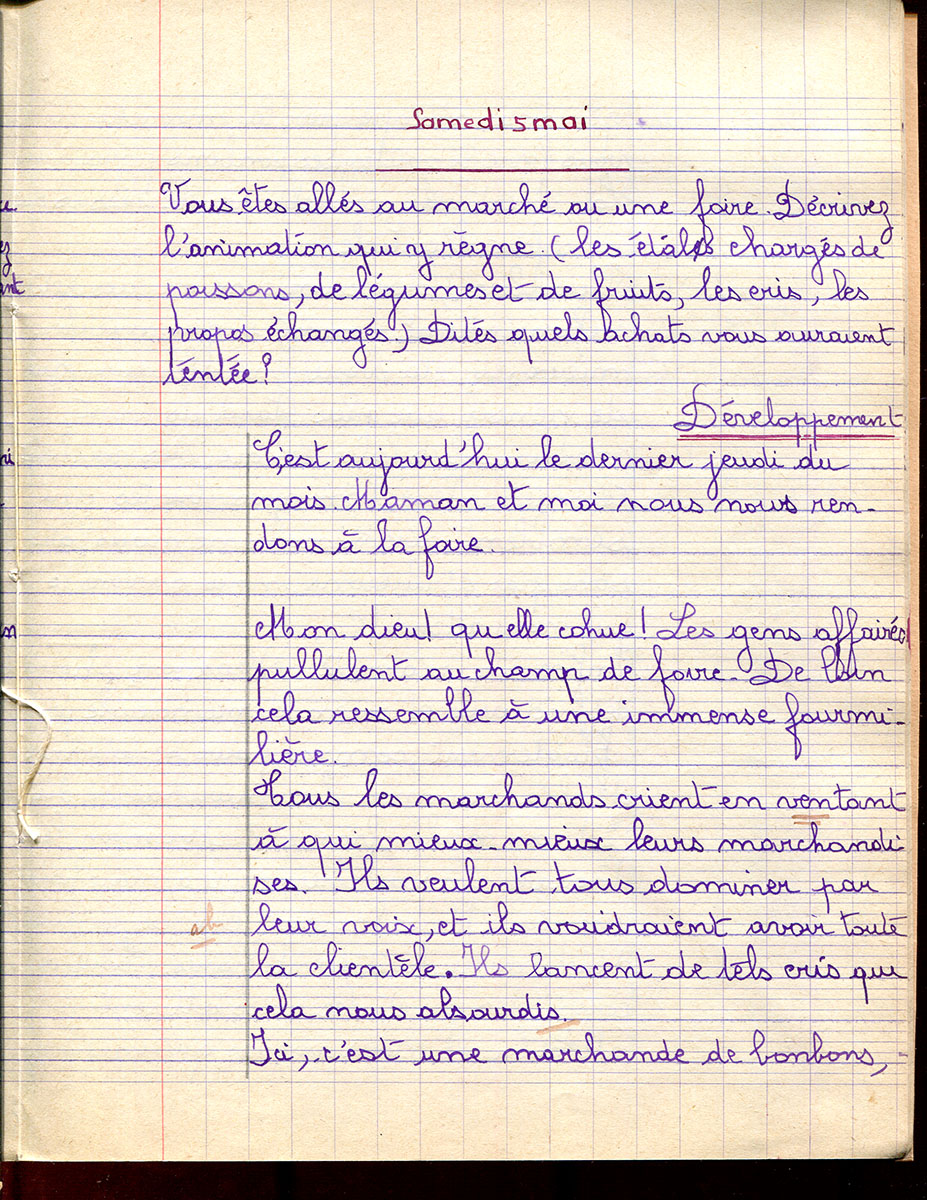 Samedi 5 mai
Vous êtes allés au marché ou une foire. Décrivez
l'animation qui y règne. (les étals chargés de
poissons, de légumes et de fruits, les cris, les
propos échangés.) Dités quels achats vous auraient
tentée?
Développement
C'est aujourd'hui le dernier jeudi du
mois. Maman et moi nous nous ren-
dons à la foire.
Mon dieu! qu elle cohue! Les gens affairés
pullulent au champ de foire. De loin
cela ressemble à une immense fourmi-
lière.
Tous les marchands crient en ventant
à qui mieux-mieux leurs marchandi
ses. Ils veulent tous dominer par
ab
leur voix, et ils voudraient avoir toute
la clientèle. Ils lancent de tels cris que
cela nous absourdis.
Ici, c'est une marchande de bonbons,